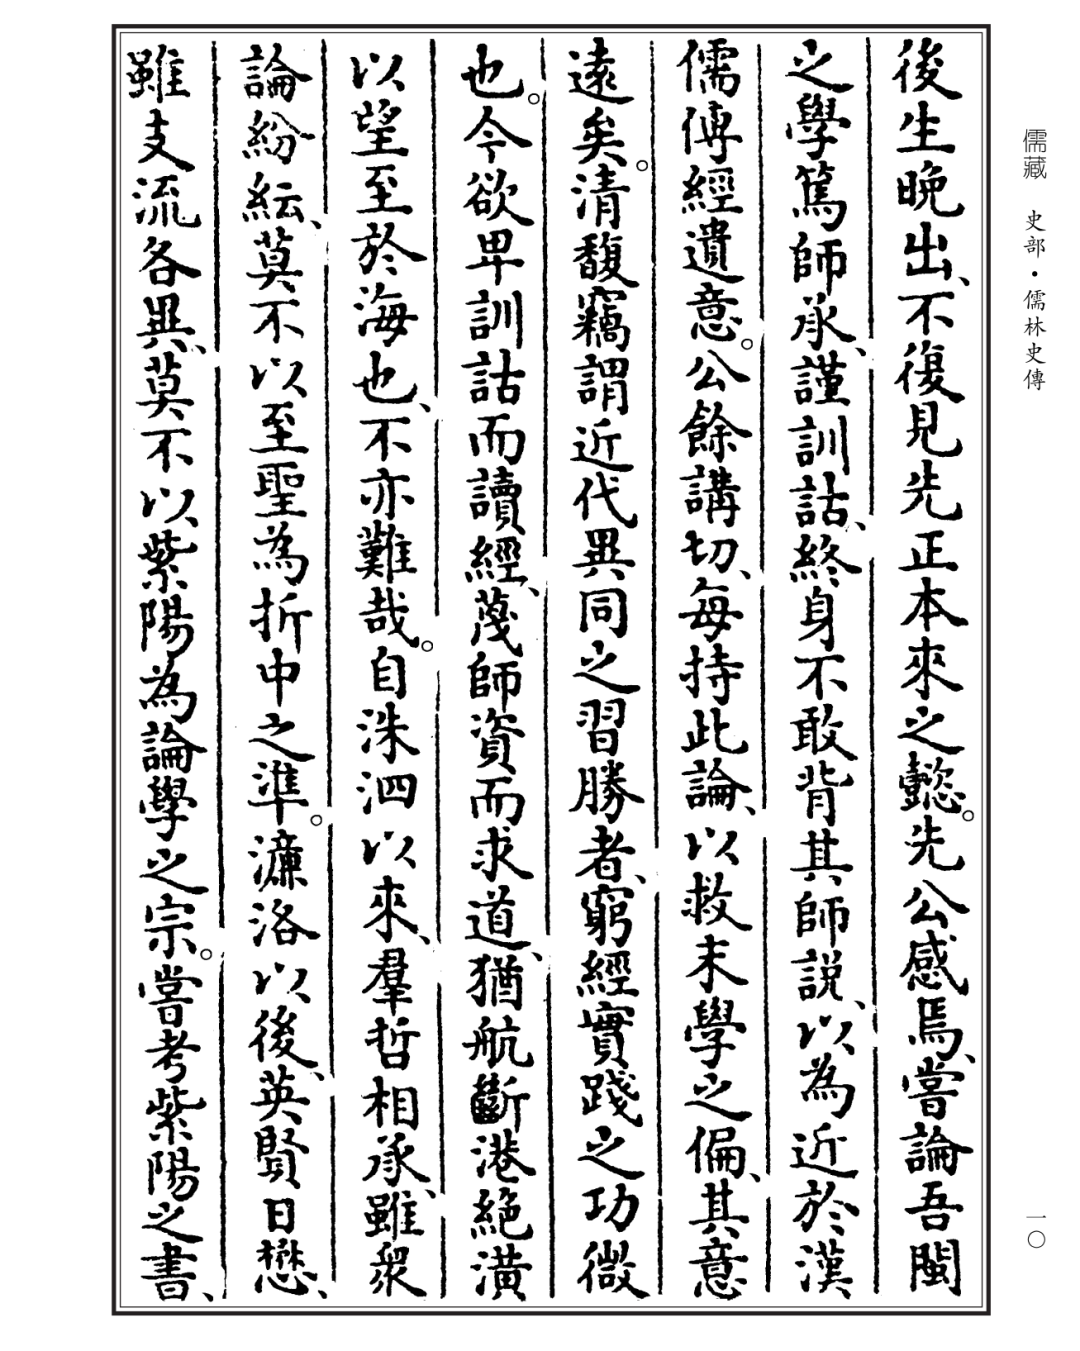 儒藏 史部·儒林史傳
後生晚出、不復見先正本來之懿。先公感焉、嘗論吾閩
之學篤師承、謹訓詁、終身不敢背其師說、以為近於漢
儒傳經遺意。公餘講切、每持此論、以救末學之偏、其意
遠矣。清馥竊謂近代異同之習勝者、窮經實踐之功微
也。今欲卑訓詁而讀經、蔑師資而求道、猶航斷港絕潢
以望至於海也、不亦難哉。自洙泗以來、羣哲相承、雖眾
論紛紜、莫不以至聖為折中之準。濂洛以後、英賢日懋、
雖支流各異、莫不以紫陽為論學之宗。嘗考紫陽之書、
一〇